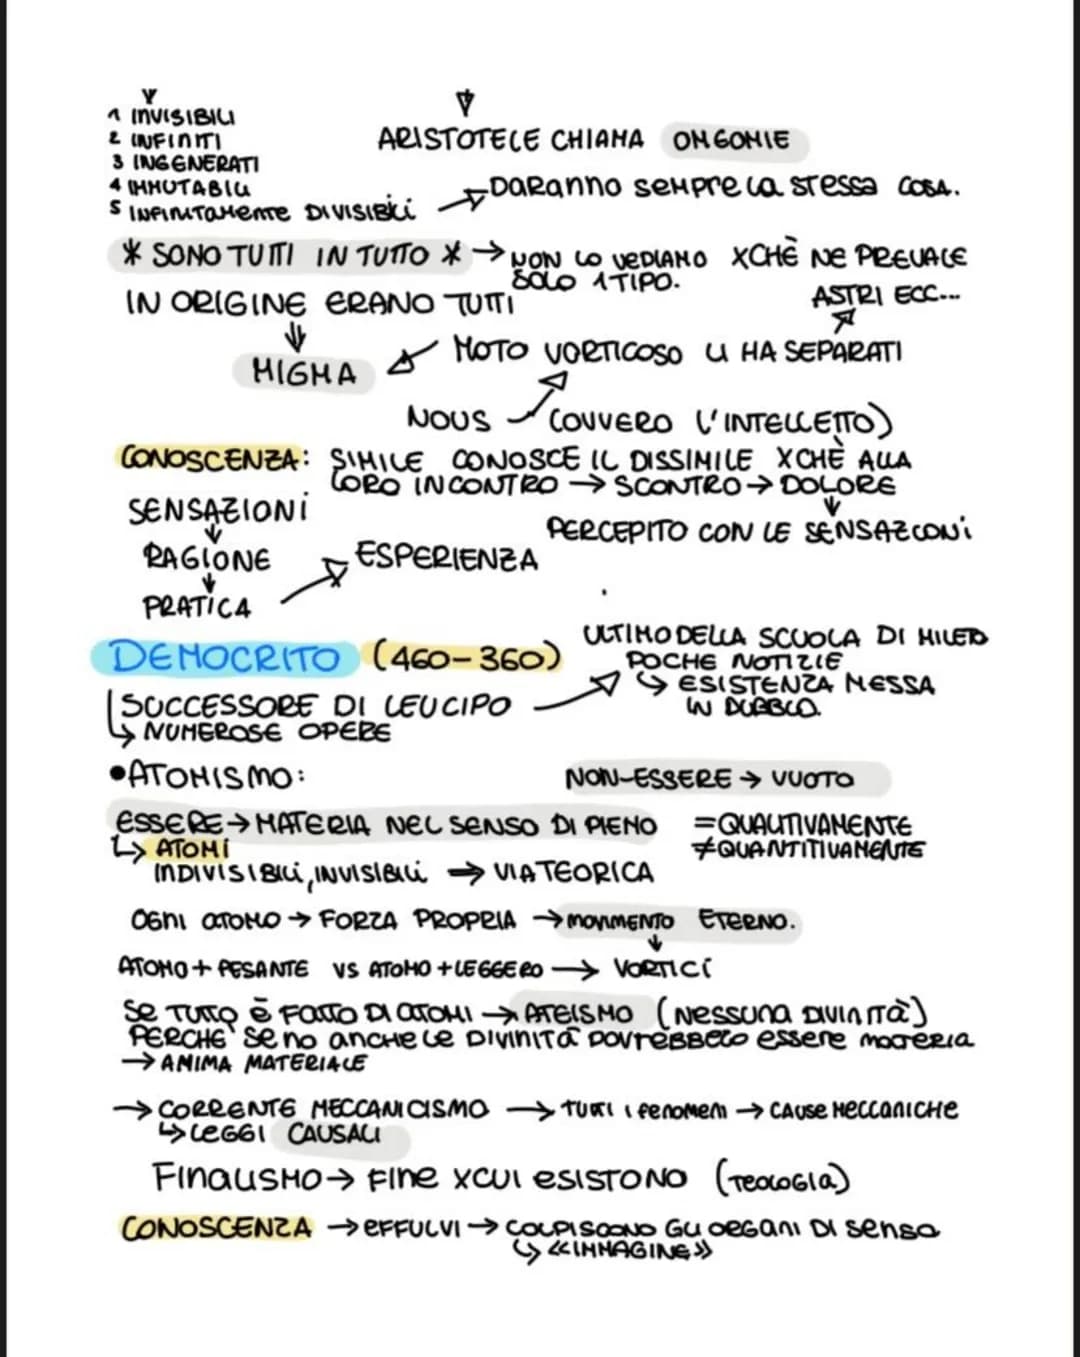 1 INVISIBILI
2 INFINITI
3 INGENERATI
4 IMMUTABILI
5 INFINITAMENTE DIVISIBILI
ARISTOTELE CHIAMA OMEOMERIE
DARANNO SEMPRE LA STESSA COSA.
* SONO TUTTI IN TUTTO * → NON LO VEDIAMO XCHÈ NE PREVALE
SOLO 1 TIPO.
IN ORIGINE ERANO TUTTI
ASTRI ECC...
MIGMA
MOTO VORTICOSO LI HA SEPARATI
NOUS (OVVERO L'INTELLETTO)
CONOSCENZA: SIMILE CONOSCE IL DISSIMILE XCHÈ ALLA
LORO INCONTRO → SCONTRO → DOLORE
SENSAZIONI
PERCEPITO CON LE SENSAZIONI
RAGIONE
ESPERIENZA
PRATICA
DEMOCRITO (460-360)
ULTIMO DELLA SCUOLA DI MILETO
POCHE NOTIZIE
↳ ESISTENZA MESSA
IN DUBBIO.
SUCCESSORE DI LEUCIPO
↳ NUMEROSE OPERE
•ATOMISMO:
NON-ESSERE → VUOTO
ESSERE → MATERIA NEL SENSO DI PIENO
=QUALITIVAMENTE
≠QUANTITIVAMENTE
↳ ATOMI
INDIVISIBILI, INVISIBILI → VIA TEORICA
OGNI ATOMO → FORZA PROPRIA → MOVIMENTO ETERNO.
ATOMO + PESANTE VS ATOMO + LEGGERO → VORTICI
SE TUTTO È FATTO DI ATOMI → ATEISMO (NESSUNA DIVINITÀ)
PERCHÈ SE NO ANCHE LE DIVINITÀ DOVREBBERO ESSERE MATERIA
→ ANIMA MATERIALE
→ CORRENTE MECCANICISMO → TUTTI I FENOMENI → CAUSE MECCANICHE
↳ LEGGI CAUSALI
FINALISMO → FINE XCUI ESISTONO (TEOLOGIA)
CONOSCENZA → EFFULVI → COLPISCONO GLI ORGANI DI SENSO
↳ «IMMAGINE»